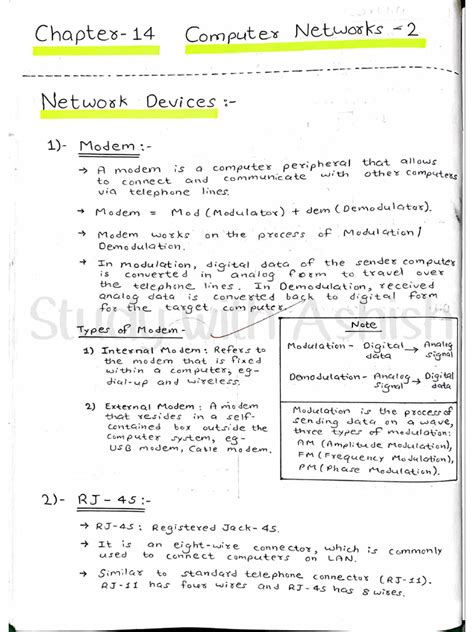 Chapter-14 Computer Networks -2
Network Devices :-
1)- Modem :-
→ A modem is a computer peripheral that allows
to connect and communicate with other computers
via telephone lines.
→ Modem = Mod (Modulator) + dem (Demodulator).
→ Modem works on the process of Modulation/
Demodulation.
→ In modulation, digital data of the sender computer
is converted in analog form to travel over
the telephone lines. In Demodulation, received
analog data is converted back to digital form
for the target computer.
Study with Ashish
Types of Modem -
1) Internal Modem : Refers to
the modem that is fixed
within a computer, eg-
dial-up and wireless.
2) External Modem : A modem
that resides in a self-
contained box outside the
computer system, eg-
USB modem, Cable modem.
Note
Modulation - Digital data → Analog signal
Demodulation - Analog signal → Digital data
Modulation is the process of
sending data on a wave,
three types of modulation:
AM (Amplitude Modulation),
FM (Frequency Modulation),
PM (Phase Modulation).
2)- RJ-45 :-
→ RJ-45 : Registered Jack-45.
→ It is an eight-wire connector, which is commonly
used to connect computers on LAN.
→ Similar to standard telephone connector (RJ-11).
RJ-11 has four wires and RJ-45 has 8 wires.